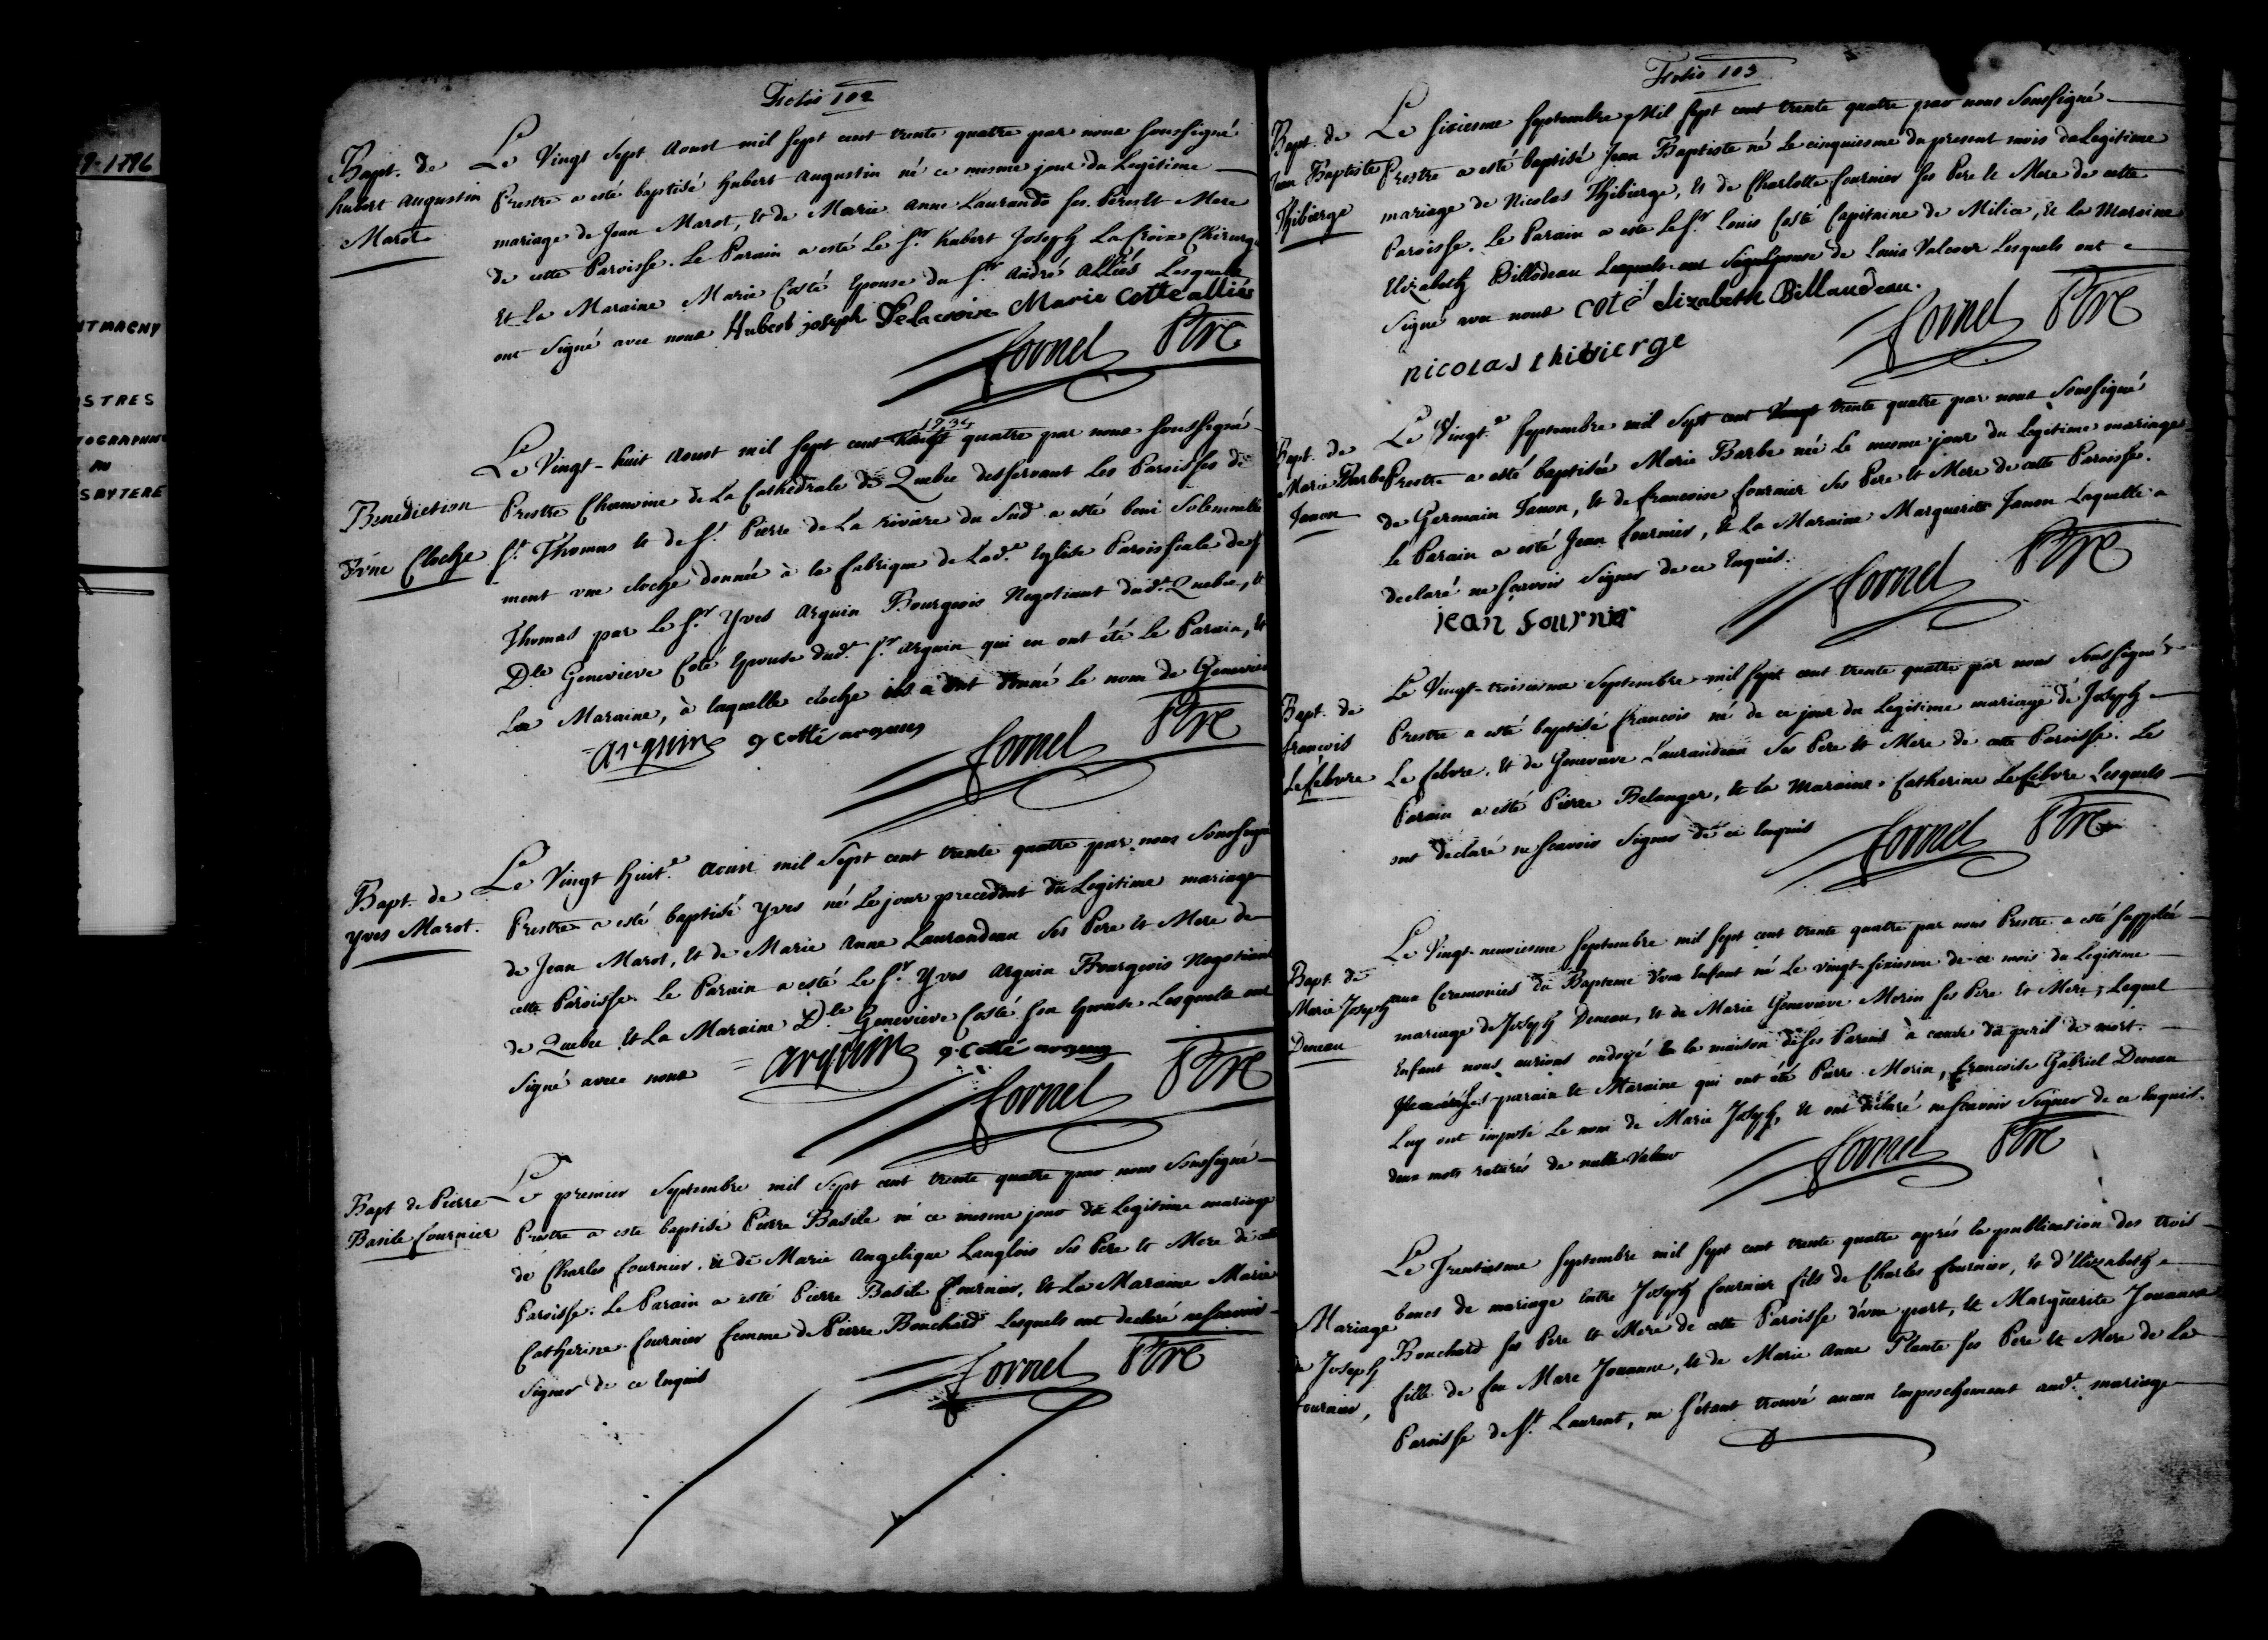 9-1796
NTMAGNY
STRES
TOGRAPHIE
AU
SBYTERE
Folio 102
Bapt. de
hubert augustin
Marot
Le Vingt Sept Aoust mil sept cent trente quatre par nous soussigné
Prestre a esté baptisé hubert augustin né ce mesme jour du Legitime
mariage de Jean Marot, et de Marie anne Laurando ses Pere et Mere
de cette Paroisse. Le Parain a esté Le Sr. hubert Joseph La Croix Chirurg.
Et La Maraine Marie Costé Epouse du Sr. André Alliés Lesquels
ont signé avec nous Hubert joseph Delacroix Marie Cotte allies
Cornel Ptre
Benediction
d'vne Cloche
Le Vingt-huit Aoust mil sept cent 1734 quatre par nous soussigné
Prestre Chanoine de La Cathedrale de Quebec desservant Les Paroisses de
St. Thomas et de St. Pierre de La riviere du Sud a esté beni Solemnelle
ment vne cloche donnée à la fabrique de Lad.e Eglise Paroissiale de St
Thomas par Le Sr. Yves Arguin Bourgeois Negotiant dud.t Quebec, et
Dle Genevieve Coté Epouse dud.t Sr. Arguin qui en ont été le Parain, et
La Maraine, à laquelle cloche ils ont donné le nom de Genevieve
arguin g cotté arguin
Cornel Ptre
Bapt. de
yves Marot.
Le Vingt huit.e Aoust mil Sept cent trente quatre par nous Soussigné
Prestre a esté baptisé Yves né Le jour precedent du Legitime mariage
de Jean Marot, et de Marie Anne Laurandeau ses Pere et Mere de
cette Paroisse. Le Parain a esté Le Sr. Yves Arguin Bourgeois Negotiant
de Quebec et La Maraine Dle Genevieve Costé son Epouse Lesquels ont
Signé avec nous arguin g cotté arguin
Cornel Ptre
Bapt de Pierre
Basile fournier
Le premier Septembre mil Sept cent trente quatre par nous soussigné
Prestre a esté baptisé Pierre Basile né ce mesme jour du Legitime mariage
de Charles fournier, et de Marie Angelique Langlois ses Pere et Mere de cette
Paroisse. Le Parain a esté Pierre Basile fournier, et La Maraine Marie
Catherine fournier femme de Pierre Bouchard Lesquels ont declaré ne scavoir
signer de ce Enquis
Cornel Ptre
Folio 103
Bapt. de
Jean Baptiste
Thibierge
Le sixiesme Septembre Mil sept cent trente quatre par nous Soussigné
Prestre a esté baptisé Jean Baptiste né Le cinquiesme du present mois du Legitime
mariage de Nicolas Thibierge, et de Charlotte fournier ses Pere et Mere de cette
Paroisse. Le Parain a esté Le Sr. Louis Costé Capitaine de Milice, et la Maraine
Elizabeth Billodeau Lesquels ont Signé Epouse de Louis Valcour Lesquels ont
Signé avec nous coté Elizabeth Billaudeau.
nicolas thibierge
Cornel Ptre
Bapt. de
Marie Barbe
Janon
Le Vingt.e Septembre mil Sept cent Vingt trente quatre par nous Soussigné
Prestre a esté baptisée Marie Barbe née Le mesme jour du legitime mariage
de Germain Janon, et de francoise fournier ses Pere et Mere de cette Paroisse.
Le Parain a esté Jean fournier, et La Maraine Marguerite Janon Laquelle a
declaré ne scavoir Signer de ce Enquis.
jean fournier
Cornel Ptre
Bapt. de
francois
Le febvre
Le Vingt-troisiesme Septembre mil sept cent trente quatre par nous Soussigné
Prestre a esté baptisé francois né de ce jour du Legitime mariage de Joseph
Le febvre, et de Genevieve Laurandeau ses Pere et Mere de cette Paroisse. Le
Parain a esté Pierre Belanger, et la Maraine Catherine Lefebvre Lesquels
ont declaré ne scavoir Signer de ce Enquis
Cornel Ptre
Bapt. de
Marie Joseph
Deneau
Le Vingt-neuviesme Septembre mil sept cent trente quatre par nous Prestre a esté suppléé
aux Ceremonies du Bapteme d'vne Enfant né Le vingt-sixiesme de ce mois du Legitime
mariage de Joseph Deneau, et de Marie Genevieve Morin ses Pere et Mere; Lequel
Enfant nous aurions ondoyé à la maison de ses Parens à cause du peril de mort.
parain et Maraine qui ont été Pierre Morin, francoise Gabriel Deneau
Luy ont imposé Le nom de Marie Joseph, et ont declaré ne scavoir Signer de ce Enquis.
deux mots raturés de nulle Valeur
Cornel Ptre
Mariage
de Joseph
fournier,
Le Trentiesme Septembre mil sept cent trente quatre aprés la publication des trois
bancs de mariage entre Joseph fournier fils de Charles fournier, et d'Elizabeth
Bouchard ses Pere et Mere de cette Paroisse d'vne part, et Marguerite Jouanne
fille de feu Marc Jouanne, et de Marie Anne Plante ses Pere et Mere de La
Paroisse de St. Laurent, ne s'étant trouvé aucun Empeschement aud.t mariage